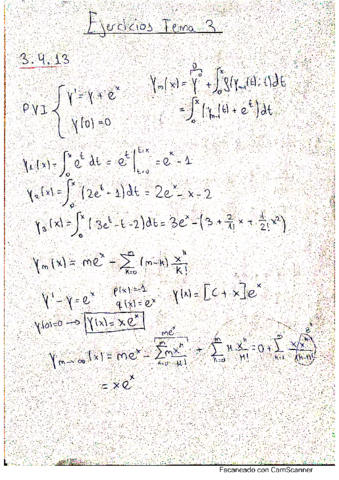 Ejercicios Tema 3
3.4.13
PVI { y' = y + e^x
y(0) = 0
y_m(x) = y^0 + ∫_0^x f(y_{m-1}(t), t) dt
= ∫_0^x (y_{m-1}(t) + e^t) dt
y_1(x) = ∫_0^x e^t dt = e^t |_{t=0}^{t=x} = e^x - 1
y_2(x) = ∫_0^x (2e^t - 1) dt = 2e^x - x - 2
y_3(x) = ∫_0^x (3e^t - t - 2) dt = 3e^x - (3 + 2/1! x + 1/2! x^2)
y_m(x) = me^x - ∑_{k=0}^{m} (m-k) x^k/k!
y' - y = e^x p(x) = -1 q(x) = e^x y(x) = [C + x] e^x
y(0) = 0 → y(x) = xe^x
me^x
y_{m→∞}(x) = me^x - ∑ m x^k/k! + ∑ k x^k/k! = 0 + ∑ x x^{k-1}/(k-1)! e^x
= xe^x
Escaneado con CamScanner